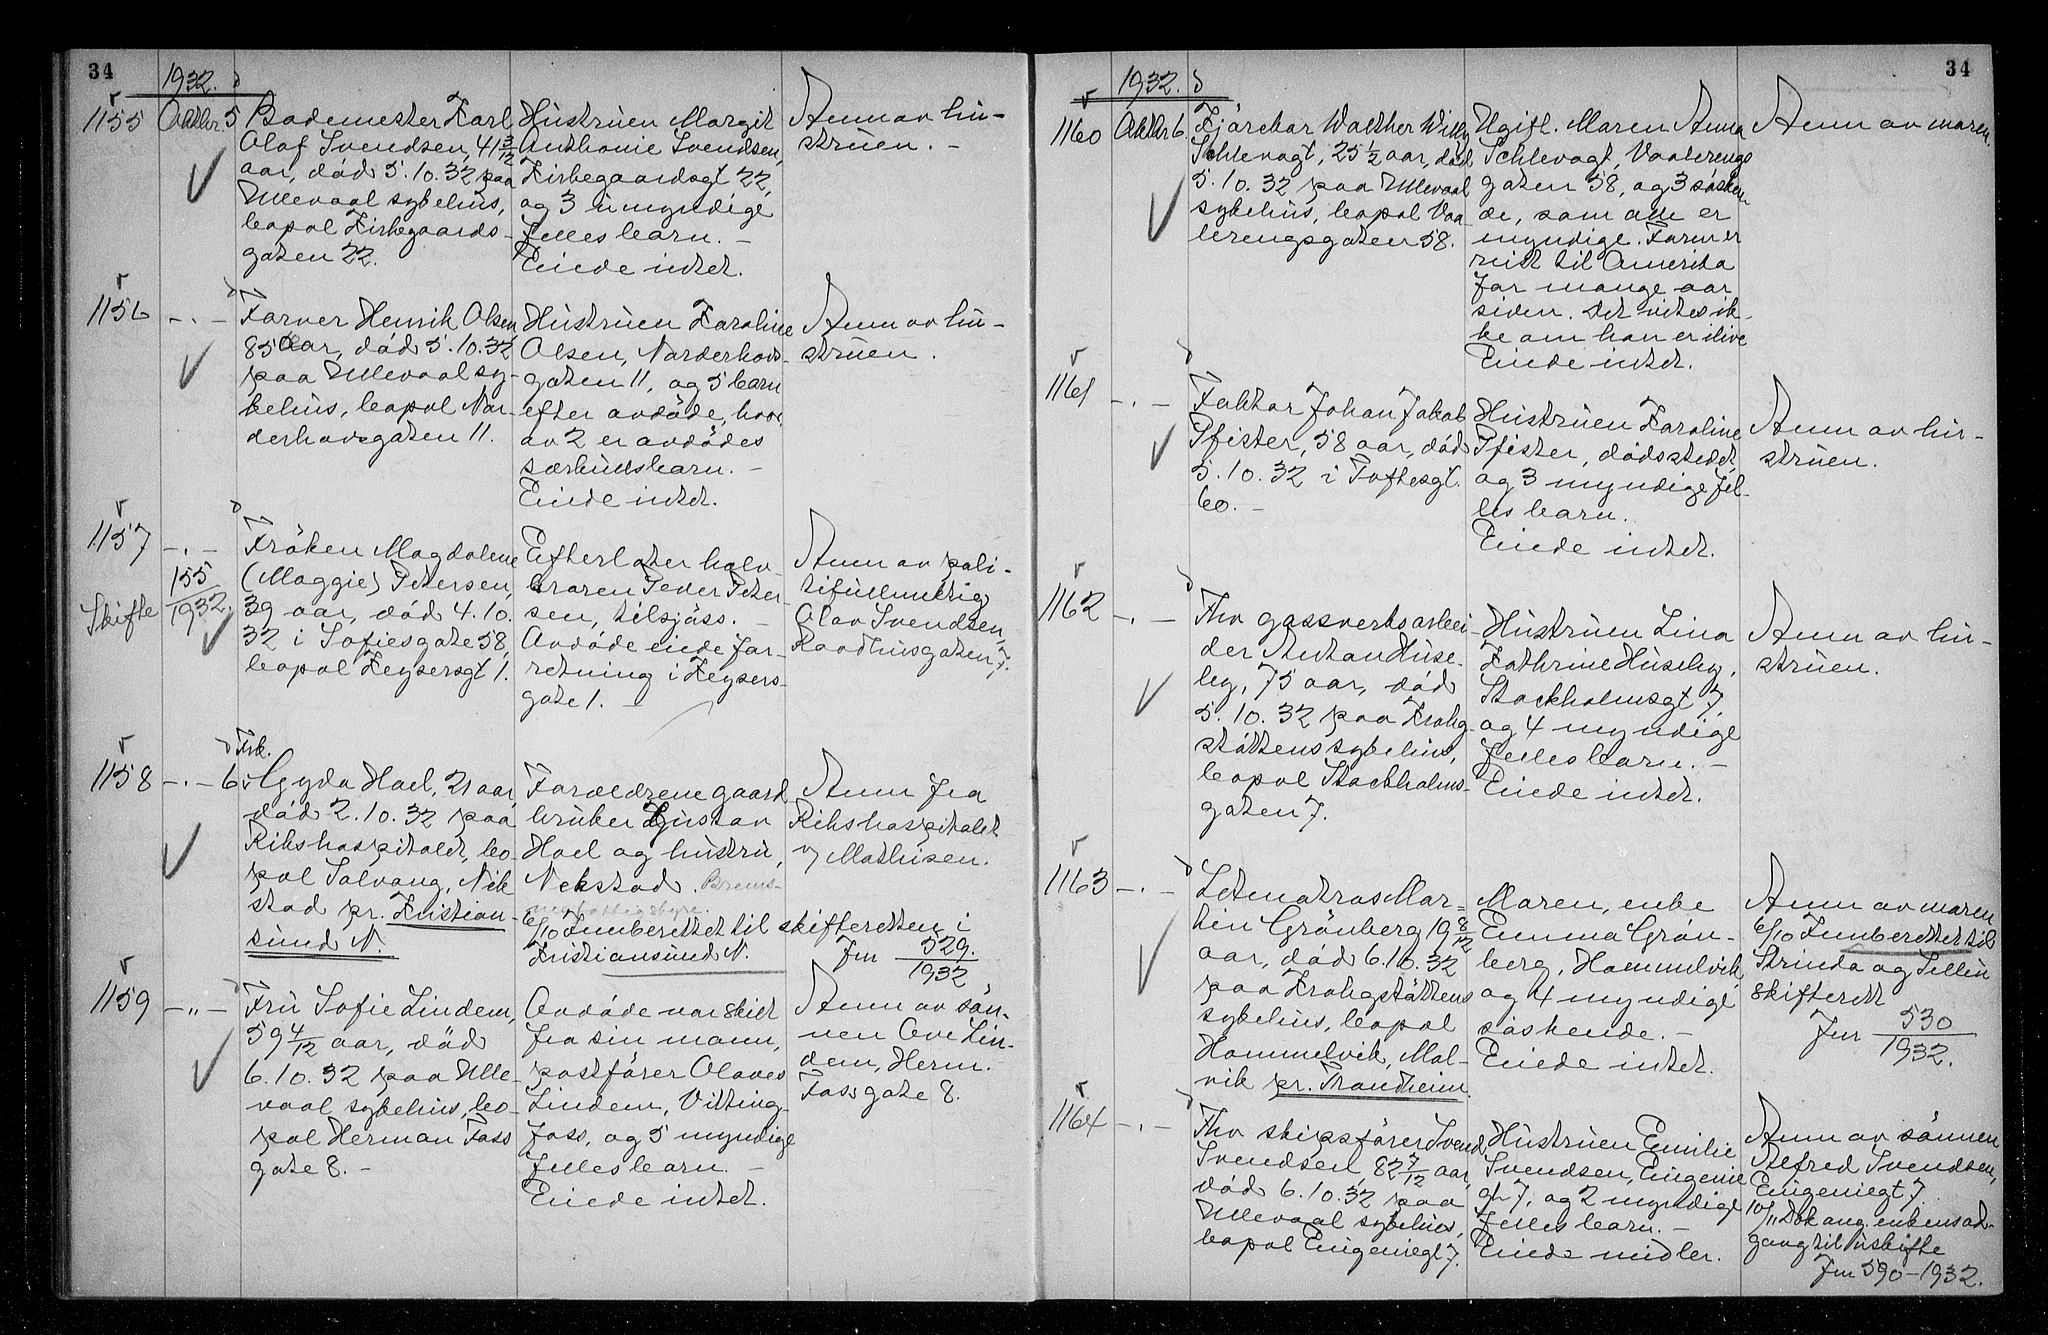 34
1932. d
1155 Oktbr. 5 Bademester Karl
Olaf Svendsen, 41 3/12
aar, död 5.10.32 paa
Ullevaal sykehus,
bopel Kirkegaards-
gaten 22.
Hustruen Margit
Anthonie Svendsen,
Kirkegaardsgt 22,
og 3 umyndige
fellesbarn. –
Eiede intet.
Anm av hu-
struen. –
1156 – . – d
Farver Henrik Olsen
85 aar, död 5.10.32
paa Ullevaal sy-
kehus, bopel Nor-
derhovsgaten 11.
Hustruen Karoline
Olsen, Norderhovs-
gaten 11, og 5 barn
efter avdöde, hvor-
av 2 er avdödes
særkuldsbarn. –
Eiede intet.
Anm av hu-
struen.
1157 – . – d
155/1932
Skifte
Fröken Magdalene
(Maggie) Petersen,
39 aar, död 4.10.
32 i Sofiesgate 58,
bopel Keysersgt 1.
Efterlater halv-
broren Peder Peter-
sen, tilsjöss. –
Avdöde eiede for-
retning i Keysers-
gate 1. –
Anm av poli-
tifullmektig
Olav Svendsen,
Raadhusgaten 7.
1158 – . – 6. d Frk.
Gyda Hoel, 21 aar,
död 2.10.32 paa
Rikshospitalet, bo-
pel Solvang, Nek-
stad pr. Kristian-
sund N.
Foreldrene gaard-
bruker Gustav
Hoel og hustru,
Nekstad.
6/10 Innberettet til skifteretten i
Kristiansund N. Jnr 529./1932
Anm fra
Rikshospitalet
v/ Mathisen.
1159 – „ – d
Fru Sofie Lindem,
59 4/12 aar, död
6.10.32 paa Ulle-
vaal sykehus, bo-
pel Herman Foss
gate 8. –
Avdöde var skilt
fra sin mann,
postförer Olaves
Lindem, Vitting-
foss, og 5 myndige
fellesbarn. –
Eiede intet.
Anm av sön-
nen Ove Lin-
dem, Herm.
Foss gate 8.
34
1932. d
1160 Oktbr 6. Kjörekar Walther Willy
Schlevogt, 25 1/2 aar, död
5.10.32 paa Ullevaal
sykehus, bopel Vaa-
lerengsgaten 58.
Ugift. Moren Anna
Schlevogt, Vaalerengs
gaten 58, og 3 sösken-
de, som alle er
myndige. Faren er
reist til Amerika
for mange aar
siden. Det vites ik-
ke om han er ilive
Eiede intet.
Anm av moren.
1161 – . – d
Faktor Johan Jakob
Pfister, 58 aar, död
5.10.32 i Toftesgt.
60. –
Hustruen Karoline
Pfister, dödsstedet,
og 3 myndige fel-
lesbarn.
Eiede intet.
Anm av hu-
struen.
1162 – . – d
Fhv gassverksarbei-
der Anton Huse-
by, 75 aar, död
5.10.32 paa Krohg-
støttens sykehus,
bopel Stockholms-
gaten 7.
Hustruen Lina
Kathrine Huseby,
Stockholmsgt 7,
og 4 myndige
fellesbarn. –
Eiede intet.
Anm av hu-
struen.
1163 – . – d
Letmatros Mar-
tin Grönberg 19 8/12
aar, död 6.10.32
paa Krohgstöttens
sykehus, bopel
Hommelvik, Mal-
vik pr. Trondheim.
Moren, enke
Emma Grön-
berg, Hommelvik,
og 4 myndige
söskende. –
Eiede intet.
Anm av moren
6/10 Innberettet til
Strinda og Selbu
skifterett
Jnr 530/1932.
1164 – . – d
Fhv skipsförer Svend
Svendsen, 82 7/12 aar,
död 6.10.32 paa
Ullevaal sykehus,
bopel Eugeniegt 7.
Hustruen Emilie
Svendsen, Eugenie
gt 7, og 2 myndige
fellesbarn. –
Eiede midler.
Anm av sönnen
Alfred Svendsen,
Eugeniegt 7.
10/11 Dok ang. enkens ad-
gang til uskifte
Jnr 590 – 1932.